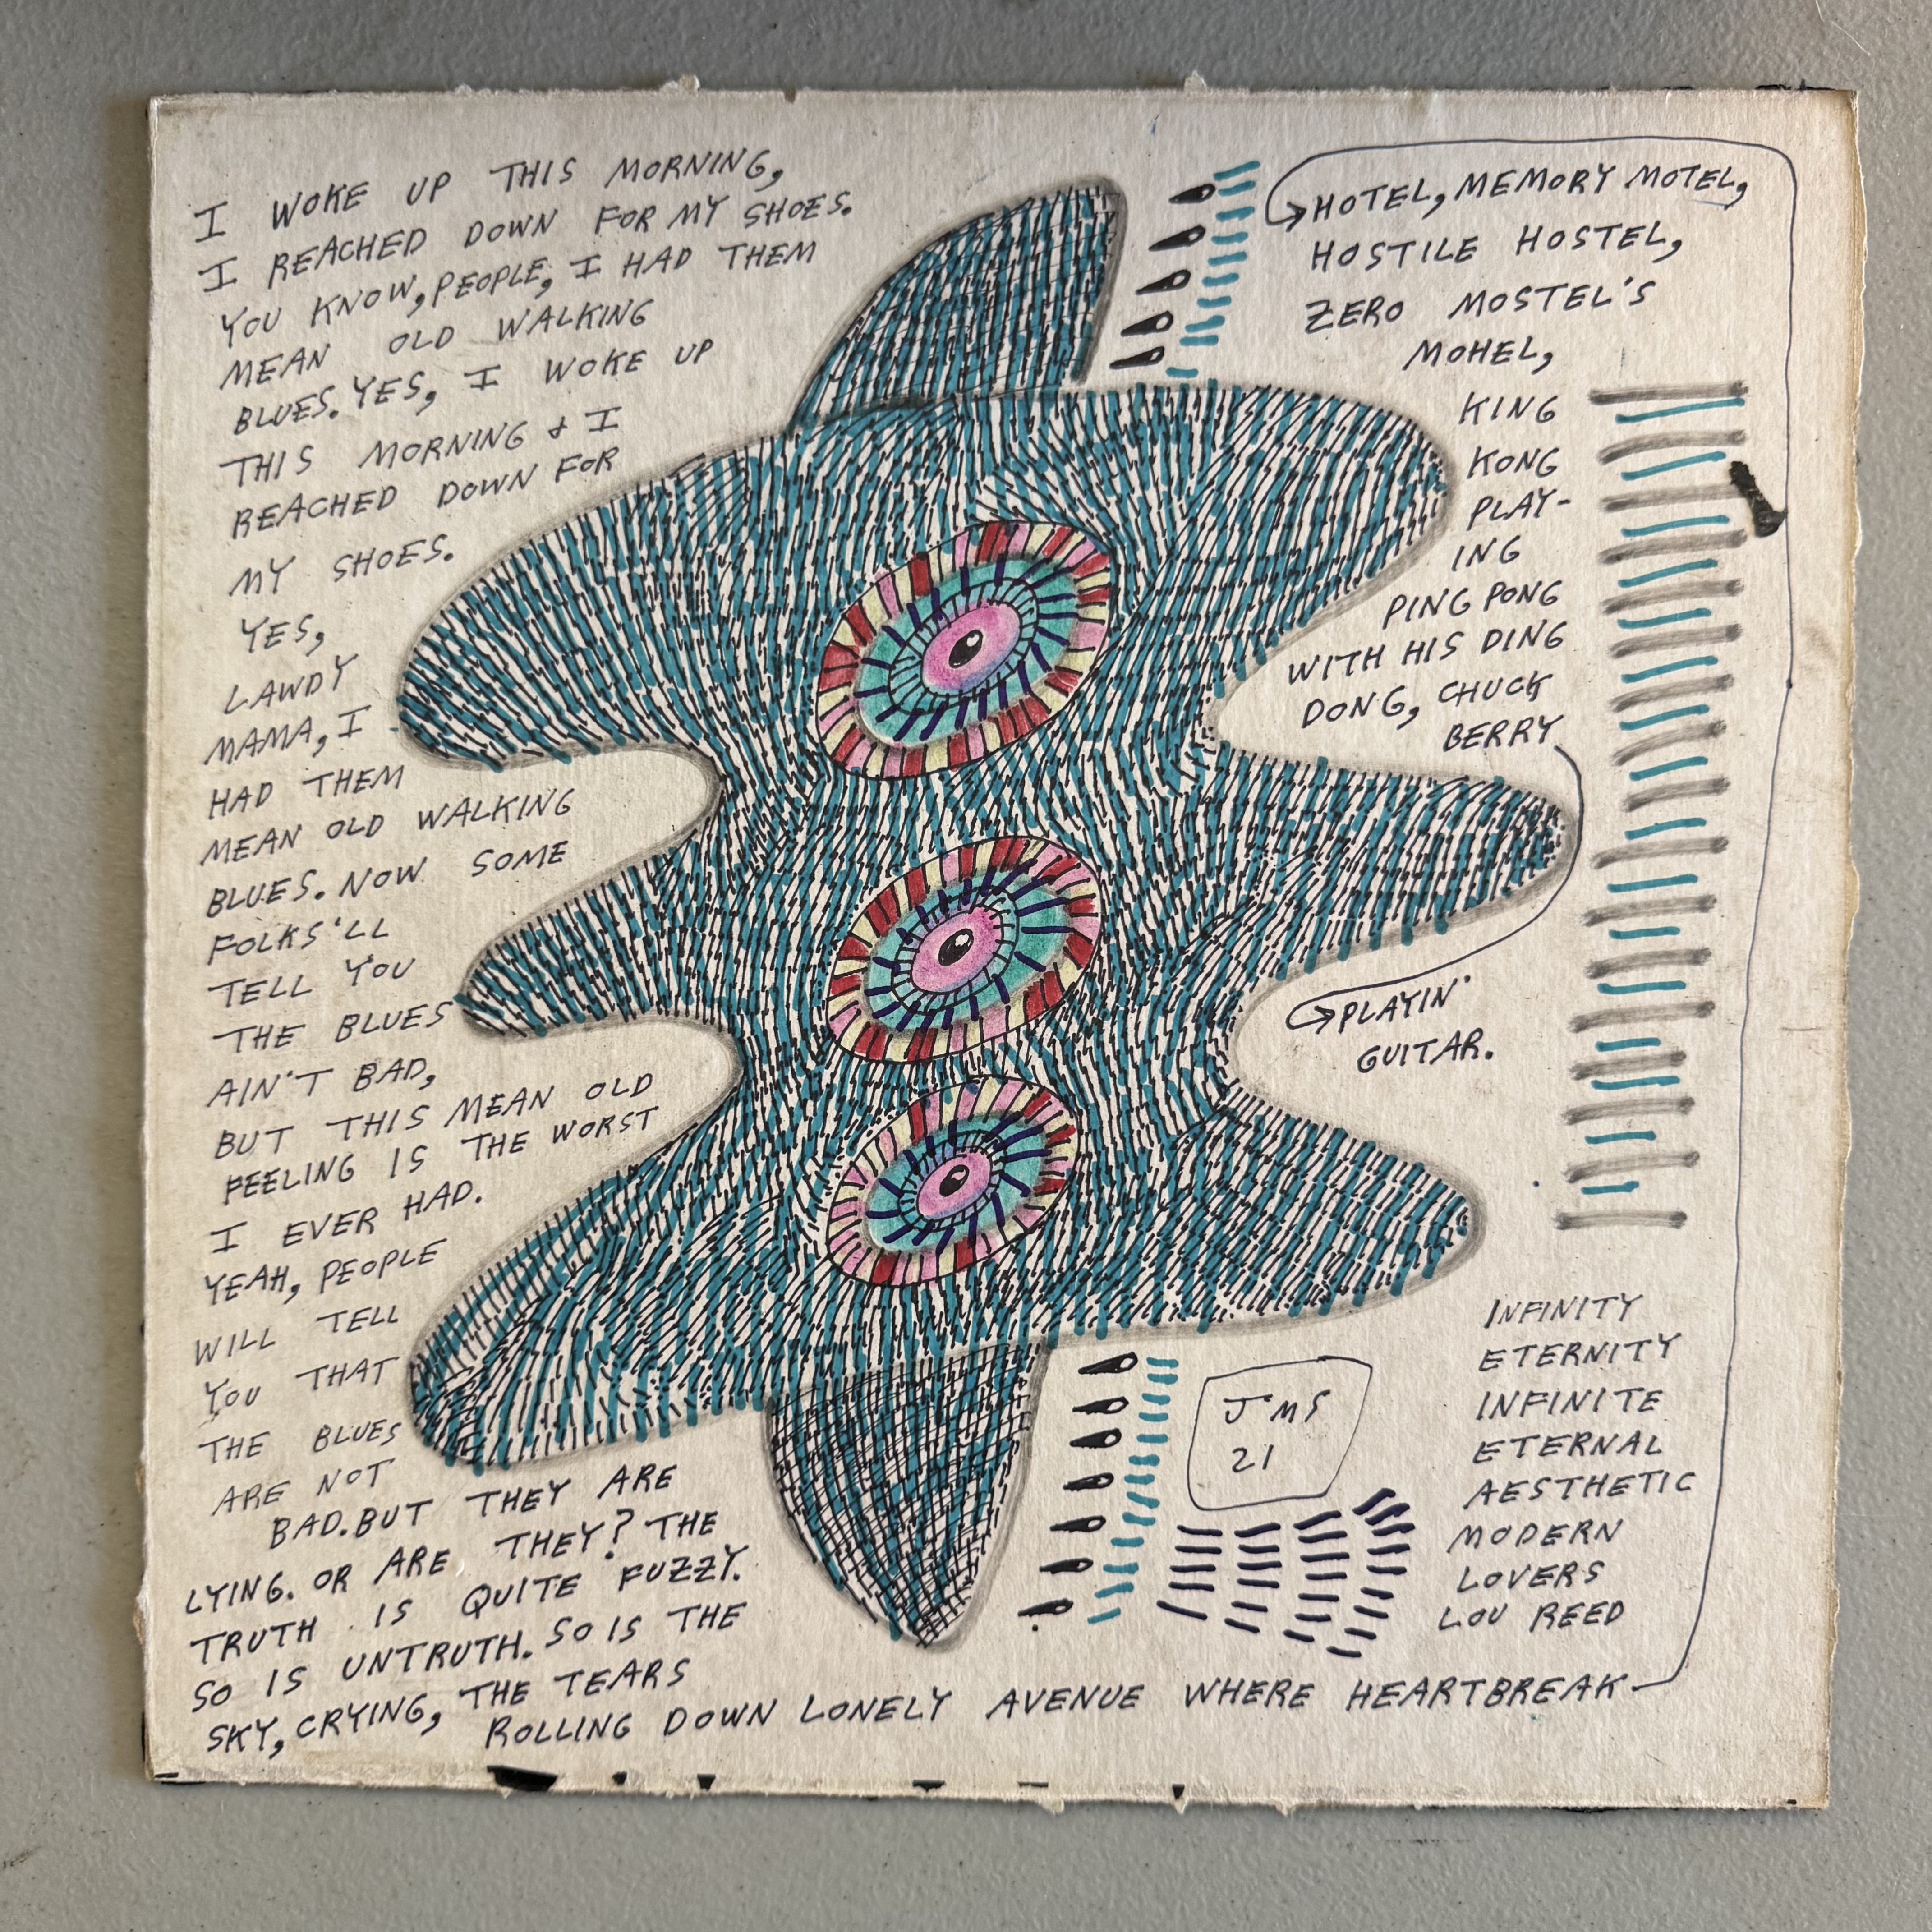 I WOKE UP THIS MORNING,
I REACHED DOWN FOR MY SHOES.
YOU KNOW, PEOPLE, I HAD THEM
MEAN OLD WALKING
BLUES. YES, I WOKE UP
THIS MORNING & I
REACHED DOWN FOR
MY SHOES.
YES,
LAWDY
MAMA, I
HAD THEM
MEAN OLD WALKING
BLUES. NOW SOME
FOLKS'LL
TELL YOU
THE BLUES
AIN'T BAD,
BUT THIS MEAN OLD
FEELING IS THE WORST
I EVER HAD.
YEAH, PEOPLE
WILL TELL
YOU THAT
THE BLUES
ARE NOT
BAD. BUT THEY ARE
LYING. OR ARE THEY? THE
TRUTH IS QUITE FUZZY.
SO IS UNTRUTH. SO IS THE
SKY, CRYING, THE TEARS
ROLLING DOWN LONELY AVENUE WHERE HEARTBREAK
HOTEL, MEMORY MOTEL,
HOSTILE HOSTEL,
ZERO MOSTEL'S
MOHEL,
KING
KONG
PLAY-
ING
PING PONG
WITH HIS DING
DONG, CHUCK
BERRY
PLAYIN'
GUITAR.
INFINITY
ETERNITY
INFINITE
ETERNAL
AESTHETIC
MODERN
LOVERS
LOU REED
JMS
21